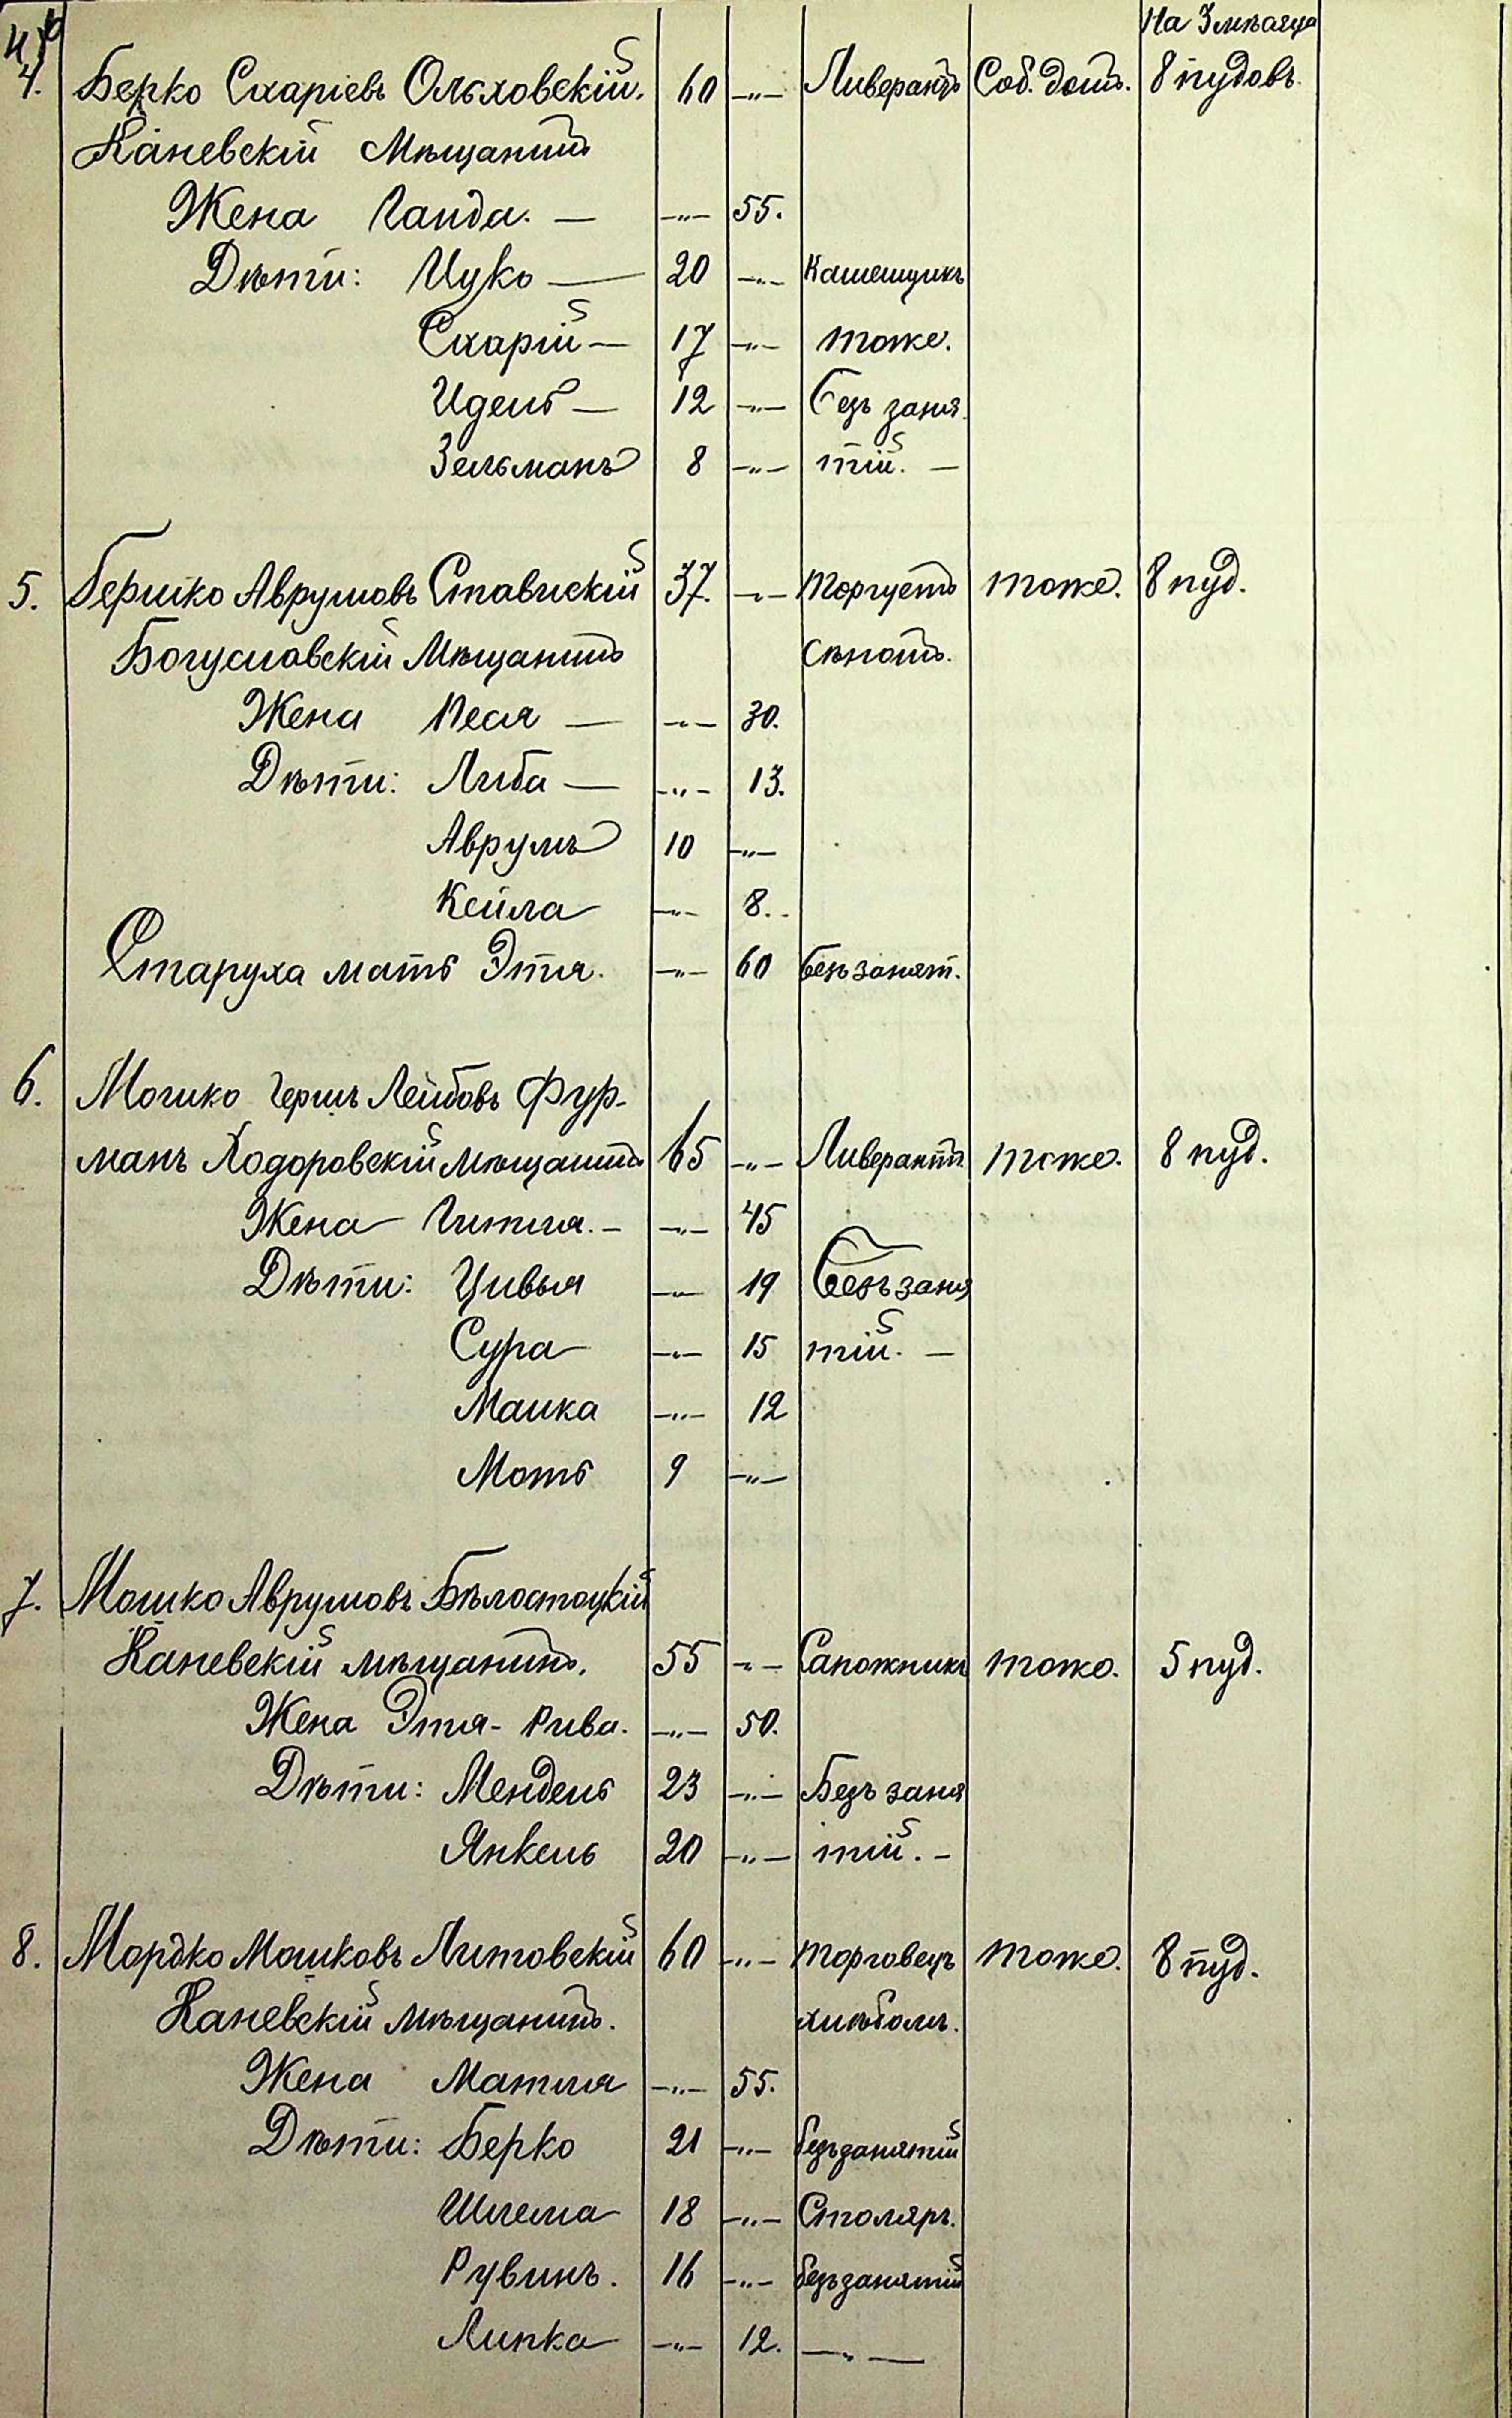 На 3 мѣсяца
4. Берко Схаріевъ Ольховскій. 60 —"— Ливерантъ Соб. домъ. 8 пудовъ.
Каневскій Мѣщанинъ
Жена Ганда. — —"— 55.
Дѣти: Ицко — 20 —"— Камещикъ
Схарій — 17 —"— тоже.
Идель — 12 —"— безъ заня
Зельманъ 8 —"— тій. —
5. Бершко Аврумовъ Ставискій 37. —"— Торгуетъ тоже. 8 пуд.
Богуславскій Мѣщанинъ сѣномъ.
Жена Песя — —"— 30.
Дѣти: Либа — —"— 13.
Аврумъ 10 —"—
Кейла —"— 8.
Старуха мать Этя. —"— 60 безъ занят.
6. Мошко Гершъ Лейбовъ Фур-
манъ Ходоровскій мѣщанинъ 65 —"— Ливерантъ тоже. 8 пуд.
Жена Гитля. — —"— 45
Дѣти: Цивья —"— 19 Безъ заня
Сура —"— 15 тій. —
Малка —"— 12
Моть 9 —"—
7. Мошко Аврумовъ Бѣлостоцкій
Каневскій мѣщанинъ. 55 —"— Сапожникъ тоже. 5 пуд.
Жена Этя-Рива. —"— 50.
Дѣти: Мендель 23 —"— Безъ заня
Янкель 20 —"— тій. —
8. Мордко Мошковъ Литовскій 60 —"— Торговецъ тоже. 8 пуд.
Каневскій мѣщанинъ. хлѣбомъ.
Жена Матля —"— 55.
Дѣти: Берко 21 —"— безъ занятій
Шлема 18 —"— Столяръ.
Рувинъ. 16 —"— безъ занятій
Липка —"— 12. —"—